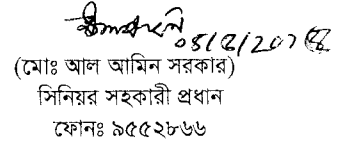 (মোঃ আল আমিন সরকার)
সিনিয়র সহকারী প্রধান
ফোনঃ ৯৫৫২৮৬৬